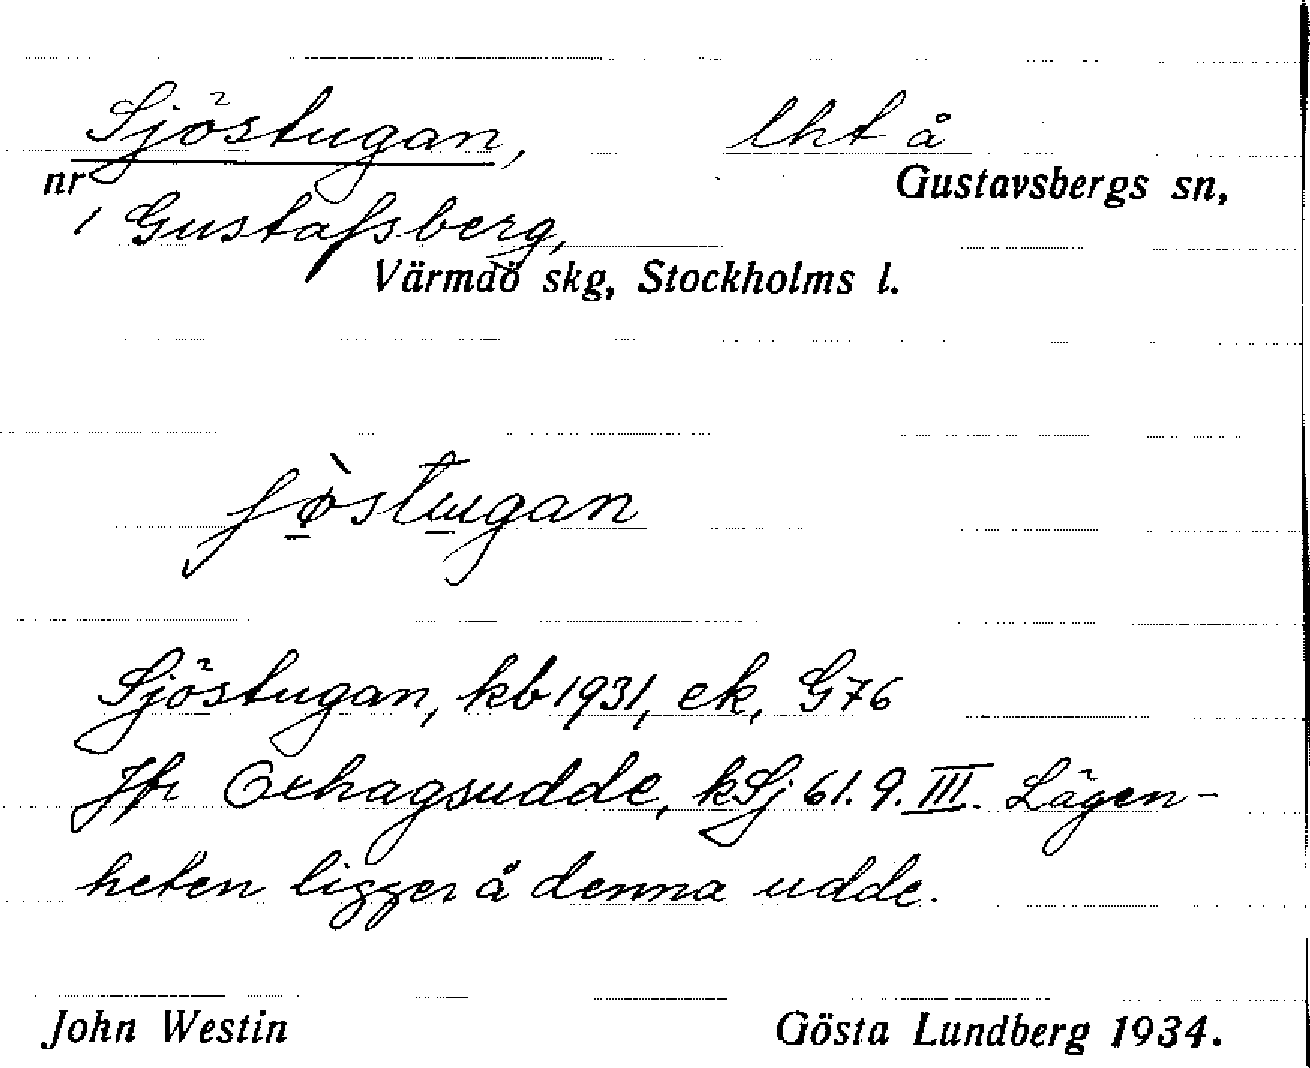 Sjöstugan, lht å
nr Gustavsbergs sn,
1 Gustafsberg,
Värmdö skg, Stockholms l.
ʃø̀stugan
Sjöstugan, kb 1931, ek, G76
Jfr Oxhagsudde, kSj 61.9.III. Lägen-
heten ligger å denna udde.
John Westin Gösta Lundberg 1934.